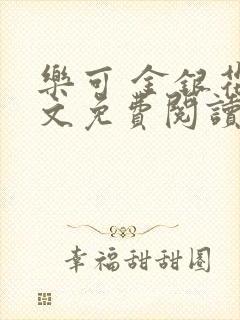 樂可 金銀花
文免費閱讀
幸福甜甜圈